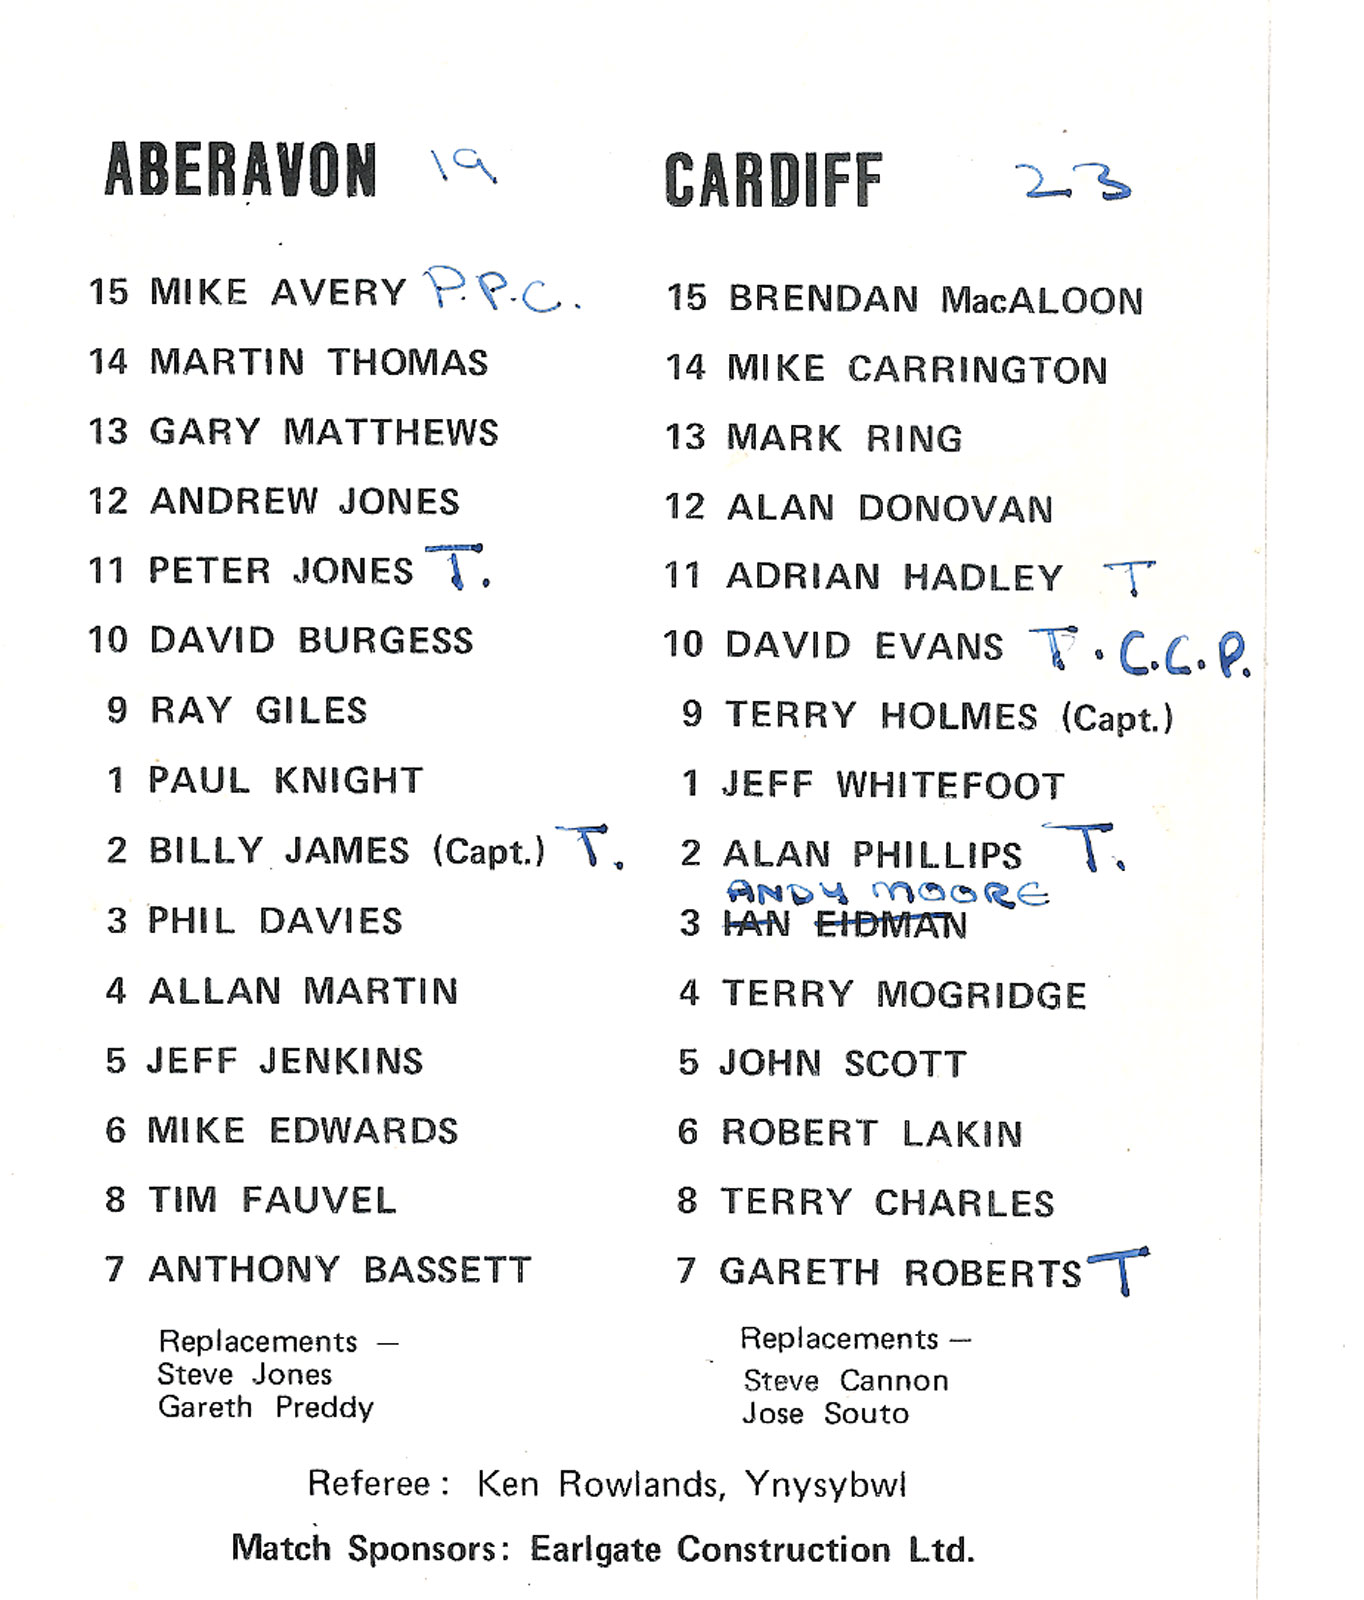 ABERAVON 19
15 MIKE AVERY P.P.C.
14 MARTIN THOMAS
13 GARY MATTHEWS
12 ANDREW JONES
11 PETER JONES T.
10 DAVID BURGESS
9 RAY GILES
1 PAUL KNIGHT
2 BILLY JAMES (Capt.) T.
3 PHIL DAVIES
4 ALLAN MARTIN
5 JEFF JENKINS
6 MIKE EDWARDS
8 TIM FAUVEL
7 ANTHONY BASSETT
Replacements —
Steve Jones
Gareth Preddy
CARDIFF 23
15 BRENDAN MacALOON
14 MIKE CARRINGTON
13 MARK RING
12 ALAN DONOVAN
11 ADRIAN HADLEY T
10 DAVID EVANS T. C.C.P.
9 TERRY HOLMES (Capt.)
1 JEFF WHITEFOOT
2 ALAN PHILLIPS T.
ANDY MOORE
3 IAN EIDMAN
4 TERRY MOGRIDGE
5 JOHN SCOTT
6 ROBERT LAKIN
8 TERRY CHARLES
7 GARETH ROBERTS T
Replacements —
Steve Cannon
Jose Souto
Referee : Ken Rowlands, Ynysybwl
Match Sponsors: Earlgate Construction Ltd.